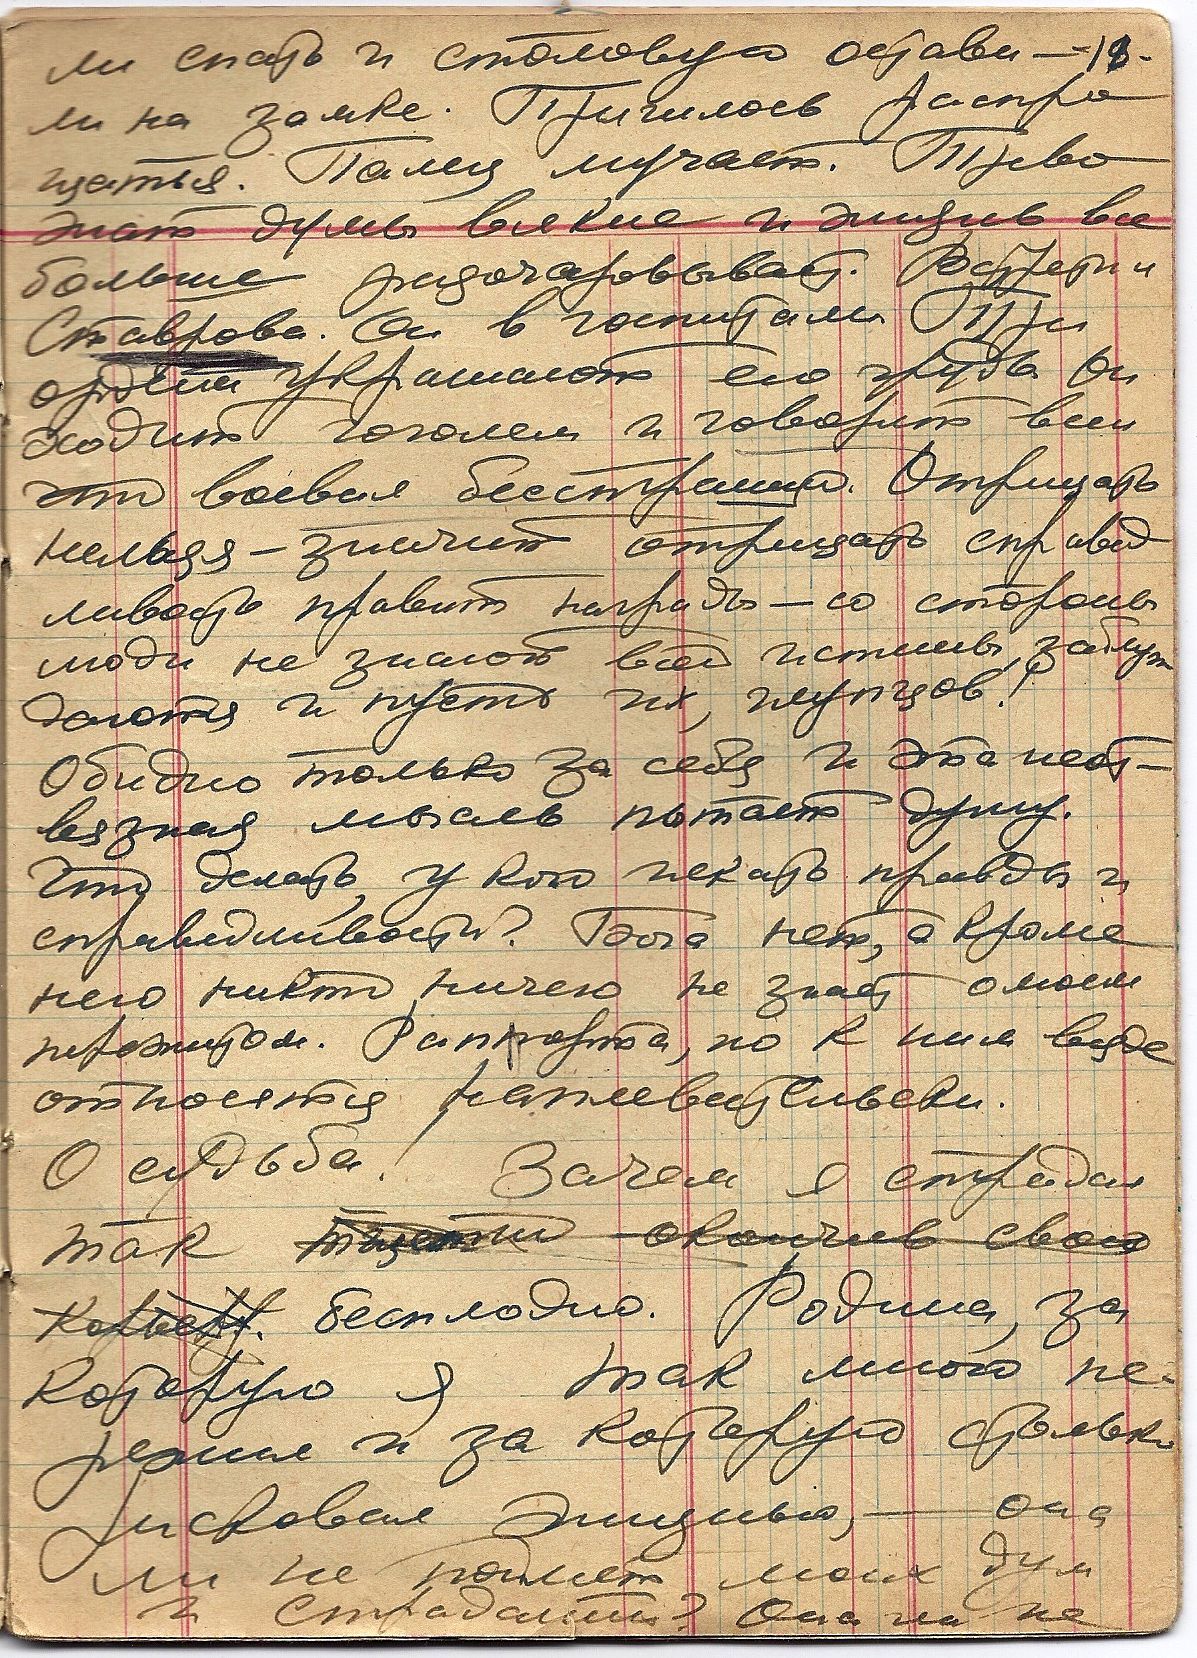 ли спать и столовую остави- -18-
ли на замке. Пришлось распро
щаться. Палец мучает. Трево
жат думы всякие и жизнь все
больше разочаровывает. Встретил
Ставрова. Он в госпитале. Три
ордена украшают его грудь. Он
ходит гоголем и говорит всем
что воевал бесстрашно. Отрицать
нельзя – значит отрицать справед
ливость наград – со стороны
люди не знают всей истины, заблуж
даются и пусть их, глупцов!
Обидно только за себя и эта неот-
вязная мысль пытает душу.
Что делать, у кого искать правды и
справедливости? Бога нет, а кроме
него никто ничего не знает о моем
пережитом. Рапорта, но к ним везде
относятся наплевательски.
О судьба! Зачем я страдал
так окончив свою
бесплодно. Родина, за
которую я так много пе-
режил и за которую столько
рисковал жизнью, – она
ли не поймет моих дум
и страданий? Она ли не